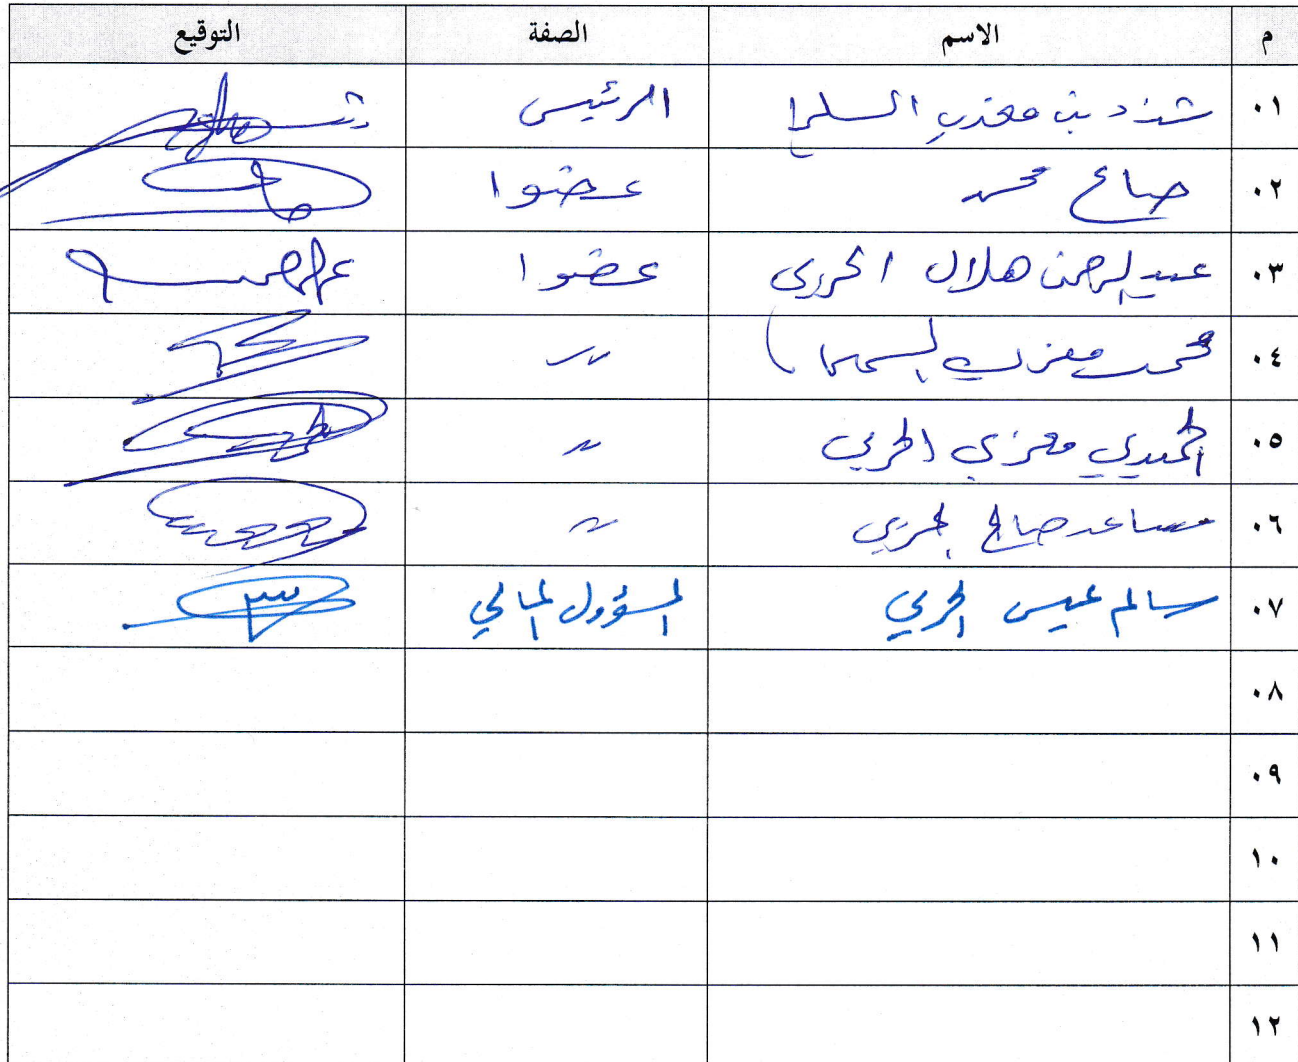 م الاسم الصفة التوقيع
٠١ الرئيس
٠٢ صالح محمد عضوا
٠٣ عبدالرحمن هلال الحربي عضوا
٠٤ محمد معزي 〃
٠٥ الحميدي معزي الحربي 〃
٠٦ مساعد صالح الحربي 〃
٠٧ سالم عيسى الحربي المسؤول المالي
٠٨
٠٩
١٠
١١
١٢